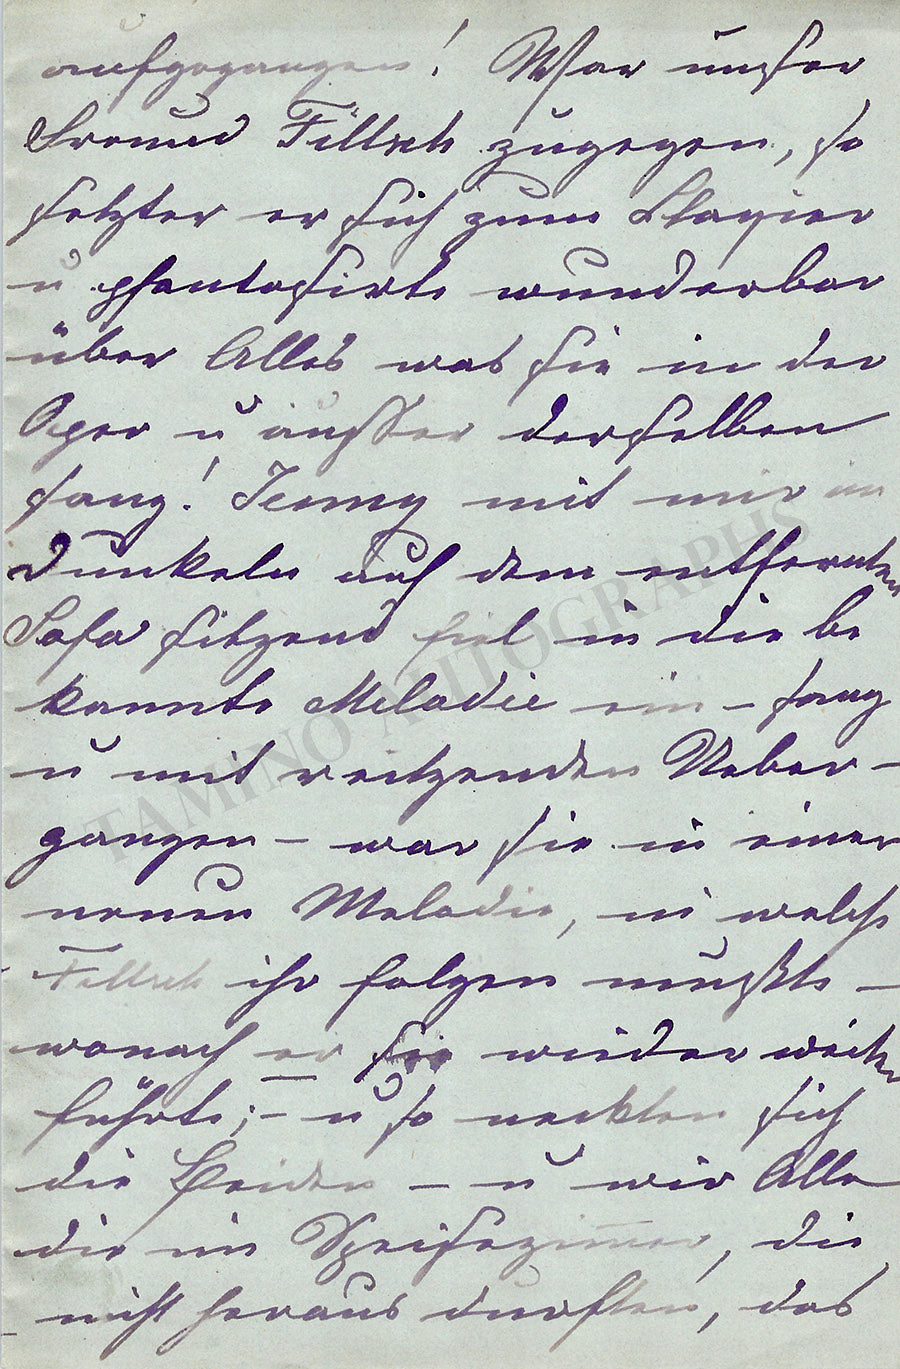 aufgegangen! War unser
Freund Filtsch zugegen, so
setzte er sich zum Klavier
u phantasirte wunderbar
über Alles was sie in der
Oper u ausser derselben
sang! Jenny mit mir im
Dunkeln auf dem entfernten
Sofa sitzend fiel in die be
kannte Melodie ein – sang
u mit reitzenden Ueber-
gangen – war sie in einer
neuen Melodie, in welche
Filtsch ihr folgen mußte –
wonach er sie wieder weiter
führte; – u so neckten sich
die Beiden – u wir Alle
die im Speisezimmer, die
nicht heraus durften, das
TAMINO AUTOGRAPHS